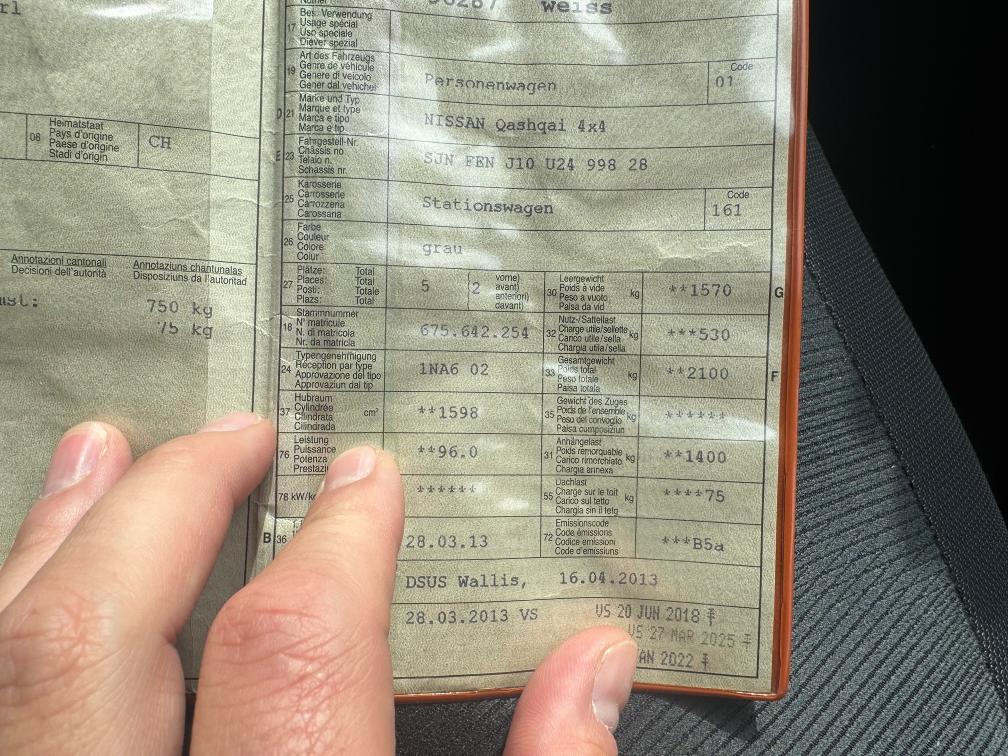 rl
08
Heimatstaat
Pays d'origine
Paese d'origine
Stadi d'origin
CH
Annotazioni cantonali
Decisioni dell'autorità
Annotaziuns chantunalas
Disposiziuns da l'autoritad
750 kg
75 kg
weiss
17
Bes. Verwendung
Usage spécial
Uso speciale
Diever spezial
19
Art des Fahrzeugs
Genre de véhicule
Genere di veicolo
Gener dal vehichel
Personenwagen
Code
01
D 21
Marke und Typ
Marque et type
Marca e tipo
Marca e tip
NISSAN Qashqai 4x4
E 23
Fahrgestell-Nr.
Châssis no
Telaio n.
Schassis nr.
SJN FEN J10 U24 998 28
25
Karosserie
Carrosserie
Carrozzeria
Carossaria
Stationswagen
Code
161
26
Farbe
Couleur
Colore
Colur
grau
27
Plätze: Total
Places: Total
Posti: Totale
Plazs: Total
5
(2 vorne)
avant)
anteriori)
davant)
30
Leergewicht
Poids à vide
Peso a vuoto
Paisa da vid
kg
**1570
G
18
Stammnummer
N° matricule
N. di matricola
Nr. da matricla
675.642.254
32
Nutz-/Sattellast
Charge utile/sellette
Carico utile/sella
Chargia utila/sella
kg
***530
24
Typengenehmigung
Réception par type
Approvazione del tipo
Approvaziun dal tip
1NA6 02
33
Gesamtgewicht
Poids total
Peso totale
Paisa totala
kg
**2100
F
37
Hubraum
Cylindrée
Cilindrata
Cilindrada
cm³
**1598
35
Gewicht des Zuges
Poids de l'ensemble
Peso del convoglio
Paisa cumposiziun
kg
******
76
Leistung
Puissance
Potenza
**96.0
31
Anhängelast
Poids remorquable
Carico rimorchiato
Chargia annexa
kg
**1400
78 kW/kg
******
55
Dachlast
Charge sur le toit
Carico sul tetto
Chargia sin il tetg
kg
****75
B 36
28.03.13
72
Emissionscode
Code émissions
Codice emissioni
Code d'emissiuns
***B5a
DSUS Wallis, 16.04.2013
28.03.2013 VS
VS 20 JUN 2018
VS 27 MAR 2025
2022